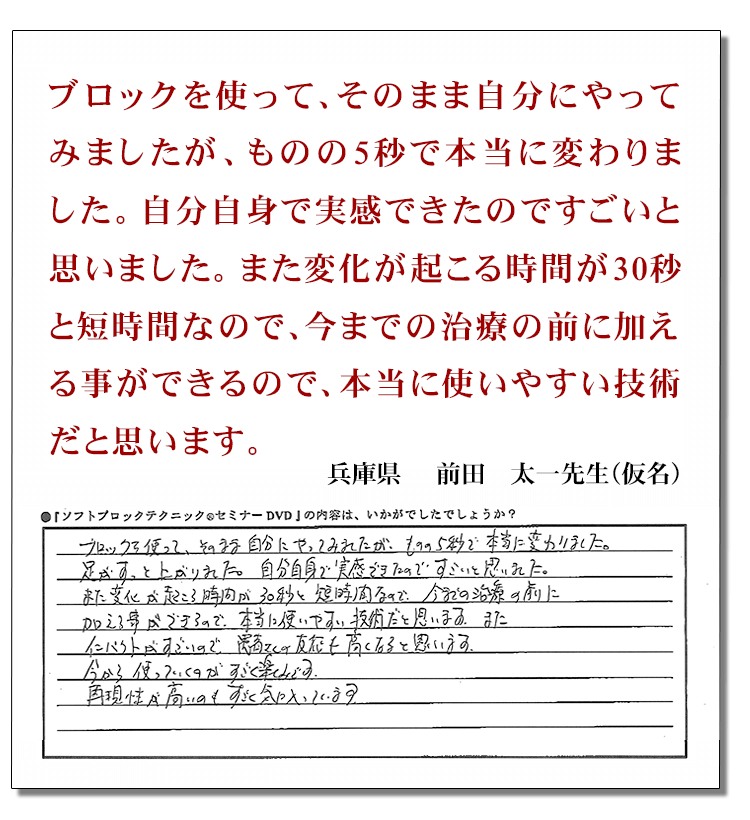 ブロックを使って、そのまま自分にやって
みましたが、ものの5秒で本当に変わりま
した。自分自身で実感できたのですごいと
思いました。また変化が起こる時間が30秒
と短時間なので、今までの治療の前に加え
る事ができるので、本当に使いやすい技術
だと思います。
兵庫県 前田 太一先生（仮名）
●『ソフトブロックテクニック®セミナーDVD』の内容は、いかがでしたでしょうか？
ブロックを使って、そのまま自分にやってみましたが、ものの5秒で本当に変わりました。
足がすっと上がりました。自分自身で実感できたのですごいと思いました。
また変化が起こる時間が30秒と短時間なので、今までの治療の前に
加える事ができるので、本当に使いやすい技術だと思います。また
インパクトがすごいので、患者さんの反応も高くなると思います。
今から使っていくのがすごく楽しみです。
再現性が高いのもすごく気に入っています